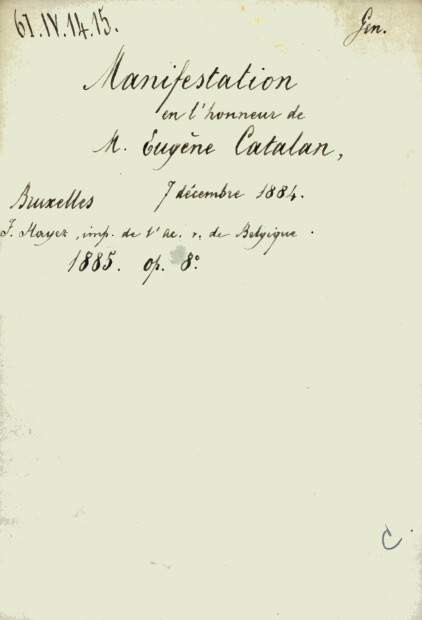 61.IV.14.15.
Gen.
Manifestation
en l'honneur de
M. Eugène Catalan,
7 décembre 1884.
Bruxelles
F. Hayez, imp. de l'Ac. r. de Belgique.
1885. op. 8°.
C